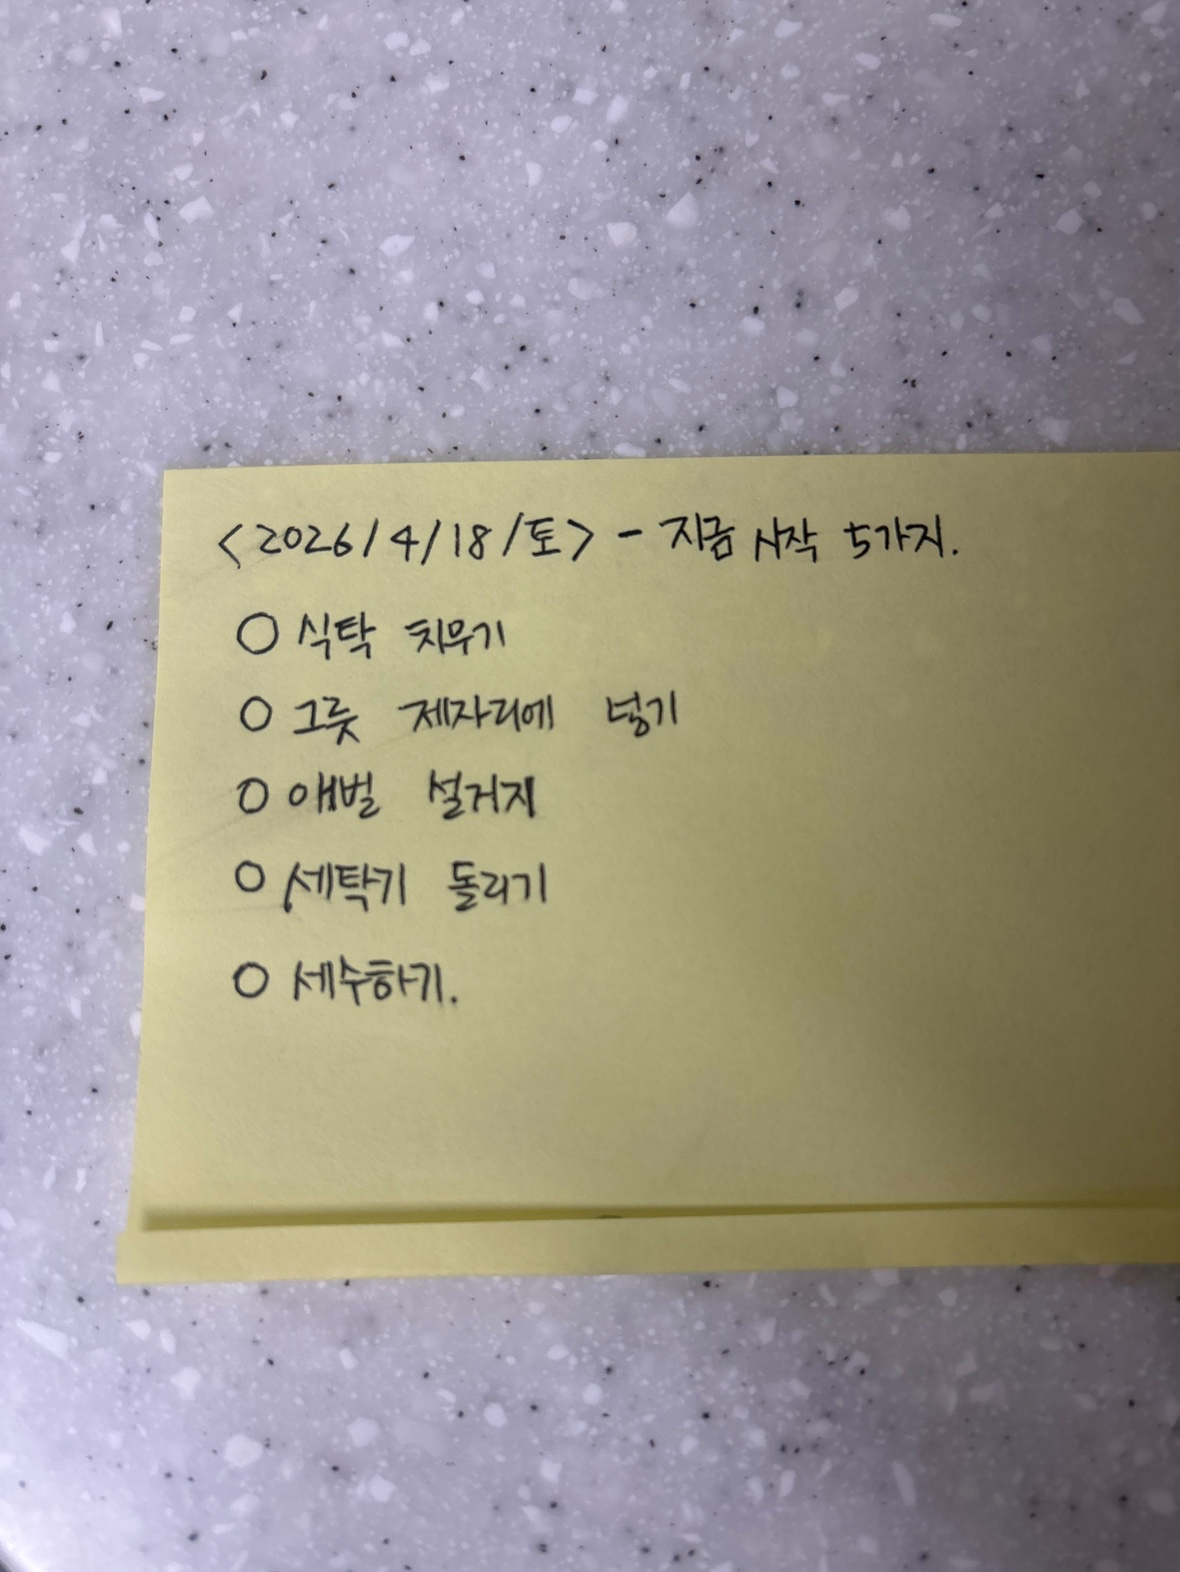 <2026/4/18/토> - 지금 시작 5가지.
○ 식탁 치우기
○ 그릇 제자리에 넣기
○ 애벌 설거지
○ 세탁기 돌리기
○ 세수하기.